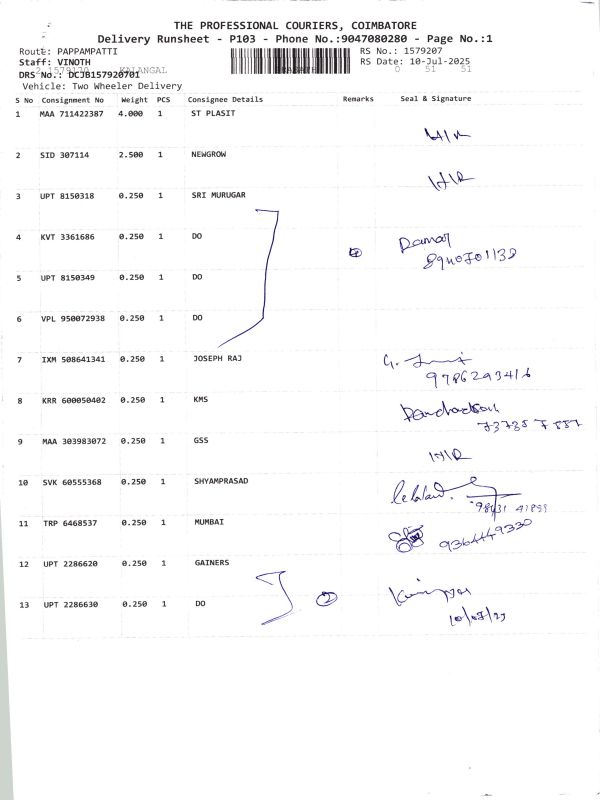 THE PROFESSIONAL COURIERS, COIMBATORE
Delivery Runsheet - P103 - Phone No.:9047080280 - Page No.:1
Route: PAPPAMPATTI RS No.: 1579207
Staff: VINOTH RS Date: 10-Jul-2025
DRS No.: DCJB157920701
KALANGAL 0 51 51
Vehicle: Two Wheeler Delivery
S No Consignment No Weight PCS Consignee Details Remarks Seal & Signature
1 MAA 711422387 4.000 1 ST PLASIT
H/R
2 SID 307114 2.500 1 NEWGROW
H/R
3 UPT 8150318 0.250 1 SRI MURUGAR
4 KVT 3361686 0.250 1 DO 4 Raman
8940701138
5 UPT 8150349 0.250 1 DO
6 VPL 950072938 0.250 1 DO
7 IXM 508641341 0.250 1 JOSEPH RAJ
9786293416
8 KRR 600050402 0.250 1 KMS
73738 7887
9 MAA 303983072 0.250 1 GSS
H/R
10 SVK 60555368 0.250 1 SHYAMPRASAD
98431 41899
11 TRP 6468537 0.250 1 MUMBAI
9364449330
12 UPT 2286620 0.250 1 GAINERS
13 UPT 2286630 0.250 1 DO 2
10/07/25